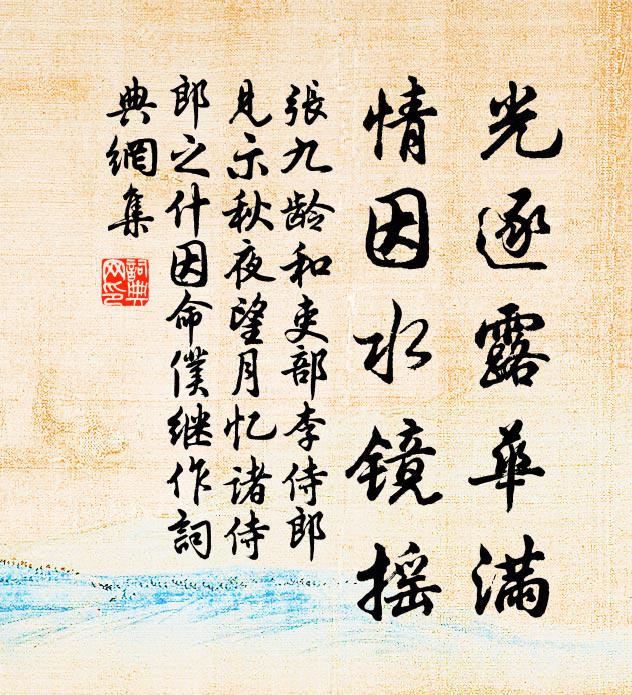 光逐露華滿
情因水镜摇
張九龄和吏部李侍郎
見示秋夜望月忆諸侍
郎之什因命僕継作詞
典網集
詞典网印